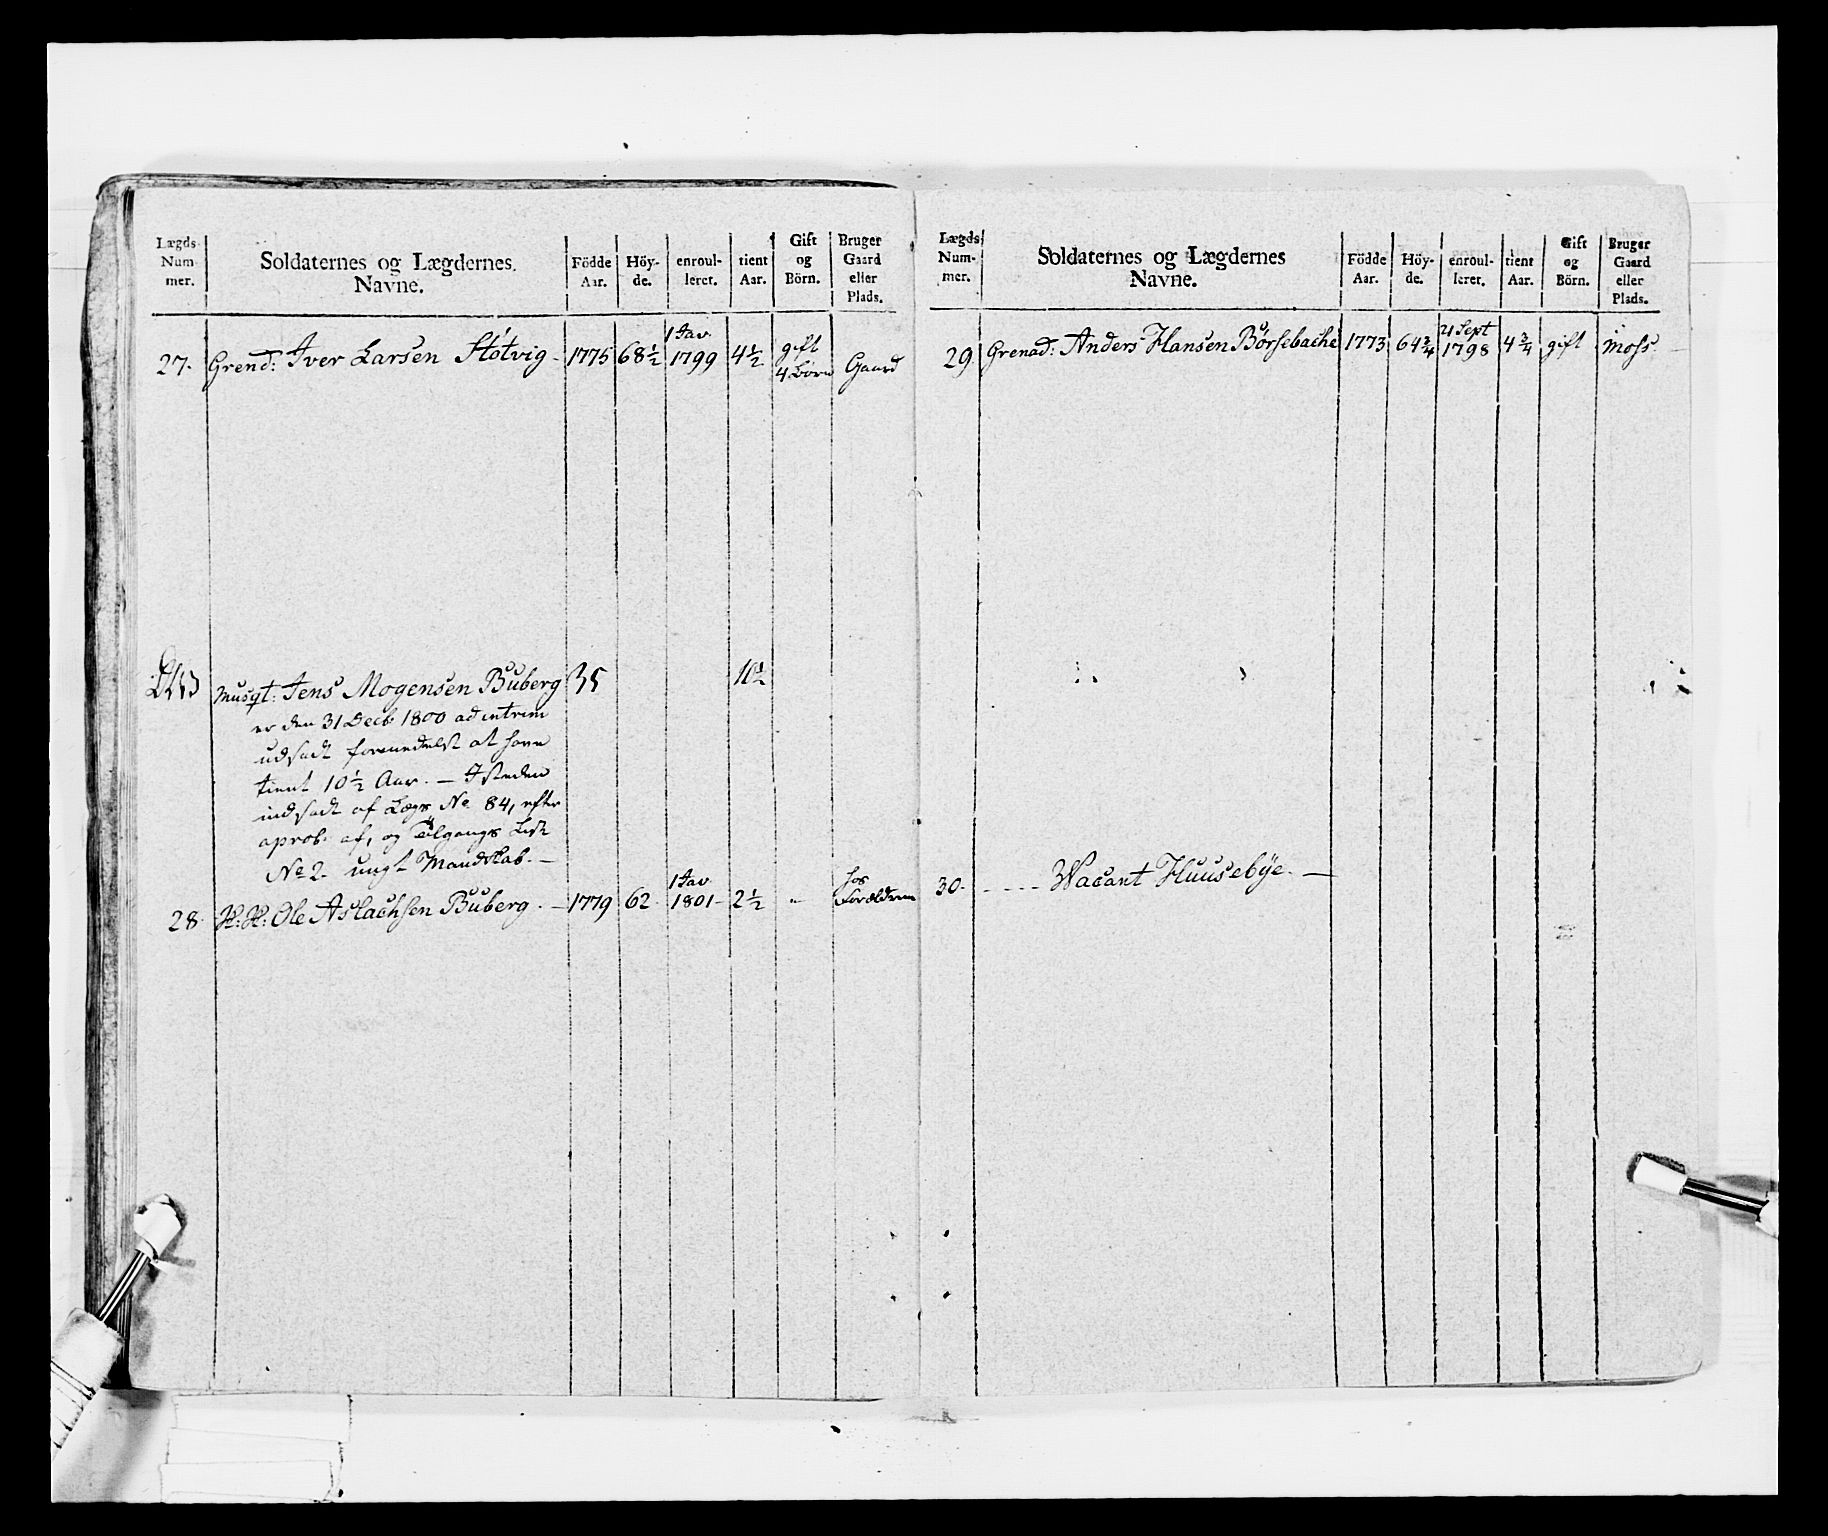 Lægds Num mer. Soldaternes og Lægdernes Navne. Födde Aar. Höy- de. enroul- leret. tient Aar. Gift og Börn. Bruger Gaard eller Plads.
27. Grend: Iver Larsen Støtvig - 1775 68½ 1 Jav 1799 4½ gift 4 Børn Gaard
Musqt: Jens Mogensen Buberg 35 10½
er den 31 Decb 1800 ad intrim
udsadt formedelst at have
tient 10½ Aar. — I steden
indsadt af Lægs No 84, efter
aprob. af, og Tilgangs List
No 2. ungt Mandskab. —
28. H: H: Ole Aslachsen Buberg. — 1779 62 1 Jav 1801 - 2½ " hos Forældrene
Lægds Num- mer. Soldaternes og Lægdernes Navne. Födde Aar. Höy- de. enroul- leret. tient Aar. Gift og Börn. Bruger Gaard eller Plads.
29. Grenad: Anders Hansen Børsebache 1773 64¾ 21 Sept 1798 4¾ gift i Moss.
30. - - - - Wacant Huusebÿe. —